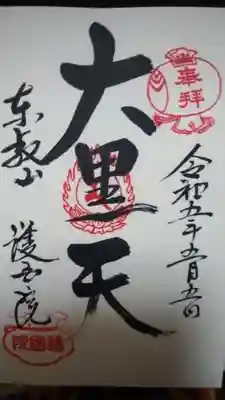 奉拝
令和五年五月五日
大黒天
東叡山
護国院